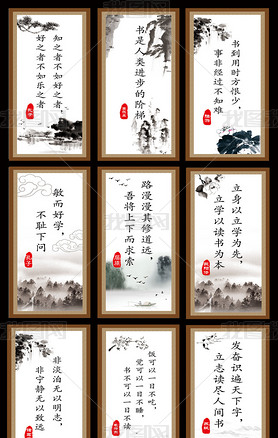 知之者不如好之者，
好之者不如乐之者，
孔子
书是人类进步的阶梯
高尔基
书到用时方恨少，
事非经过不知难
陆游
敏而好学，
不耻下问
孔子
路漫漫其修道远，
吾将上下而求索
屈原
立身以立学为先，
立学以读书为本
欧阳修
非淡泊无以明志，
非宁静无以致远
饭可以一日不吃，
觉可以一日不睡，
书不可以一日不读
发奋识遍天下字，
立志读尽人间书
苏轼